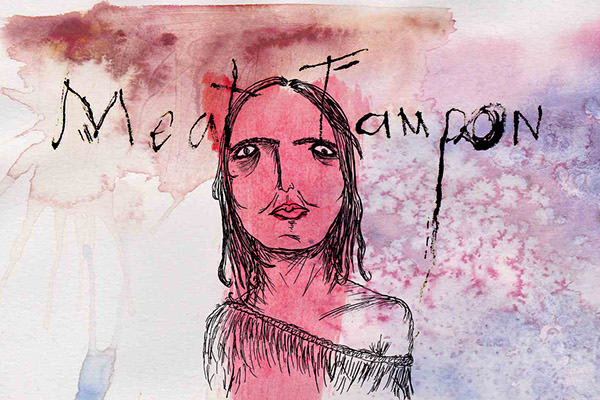 Meat Tampon